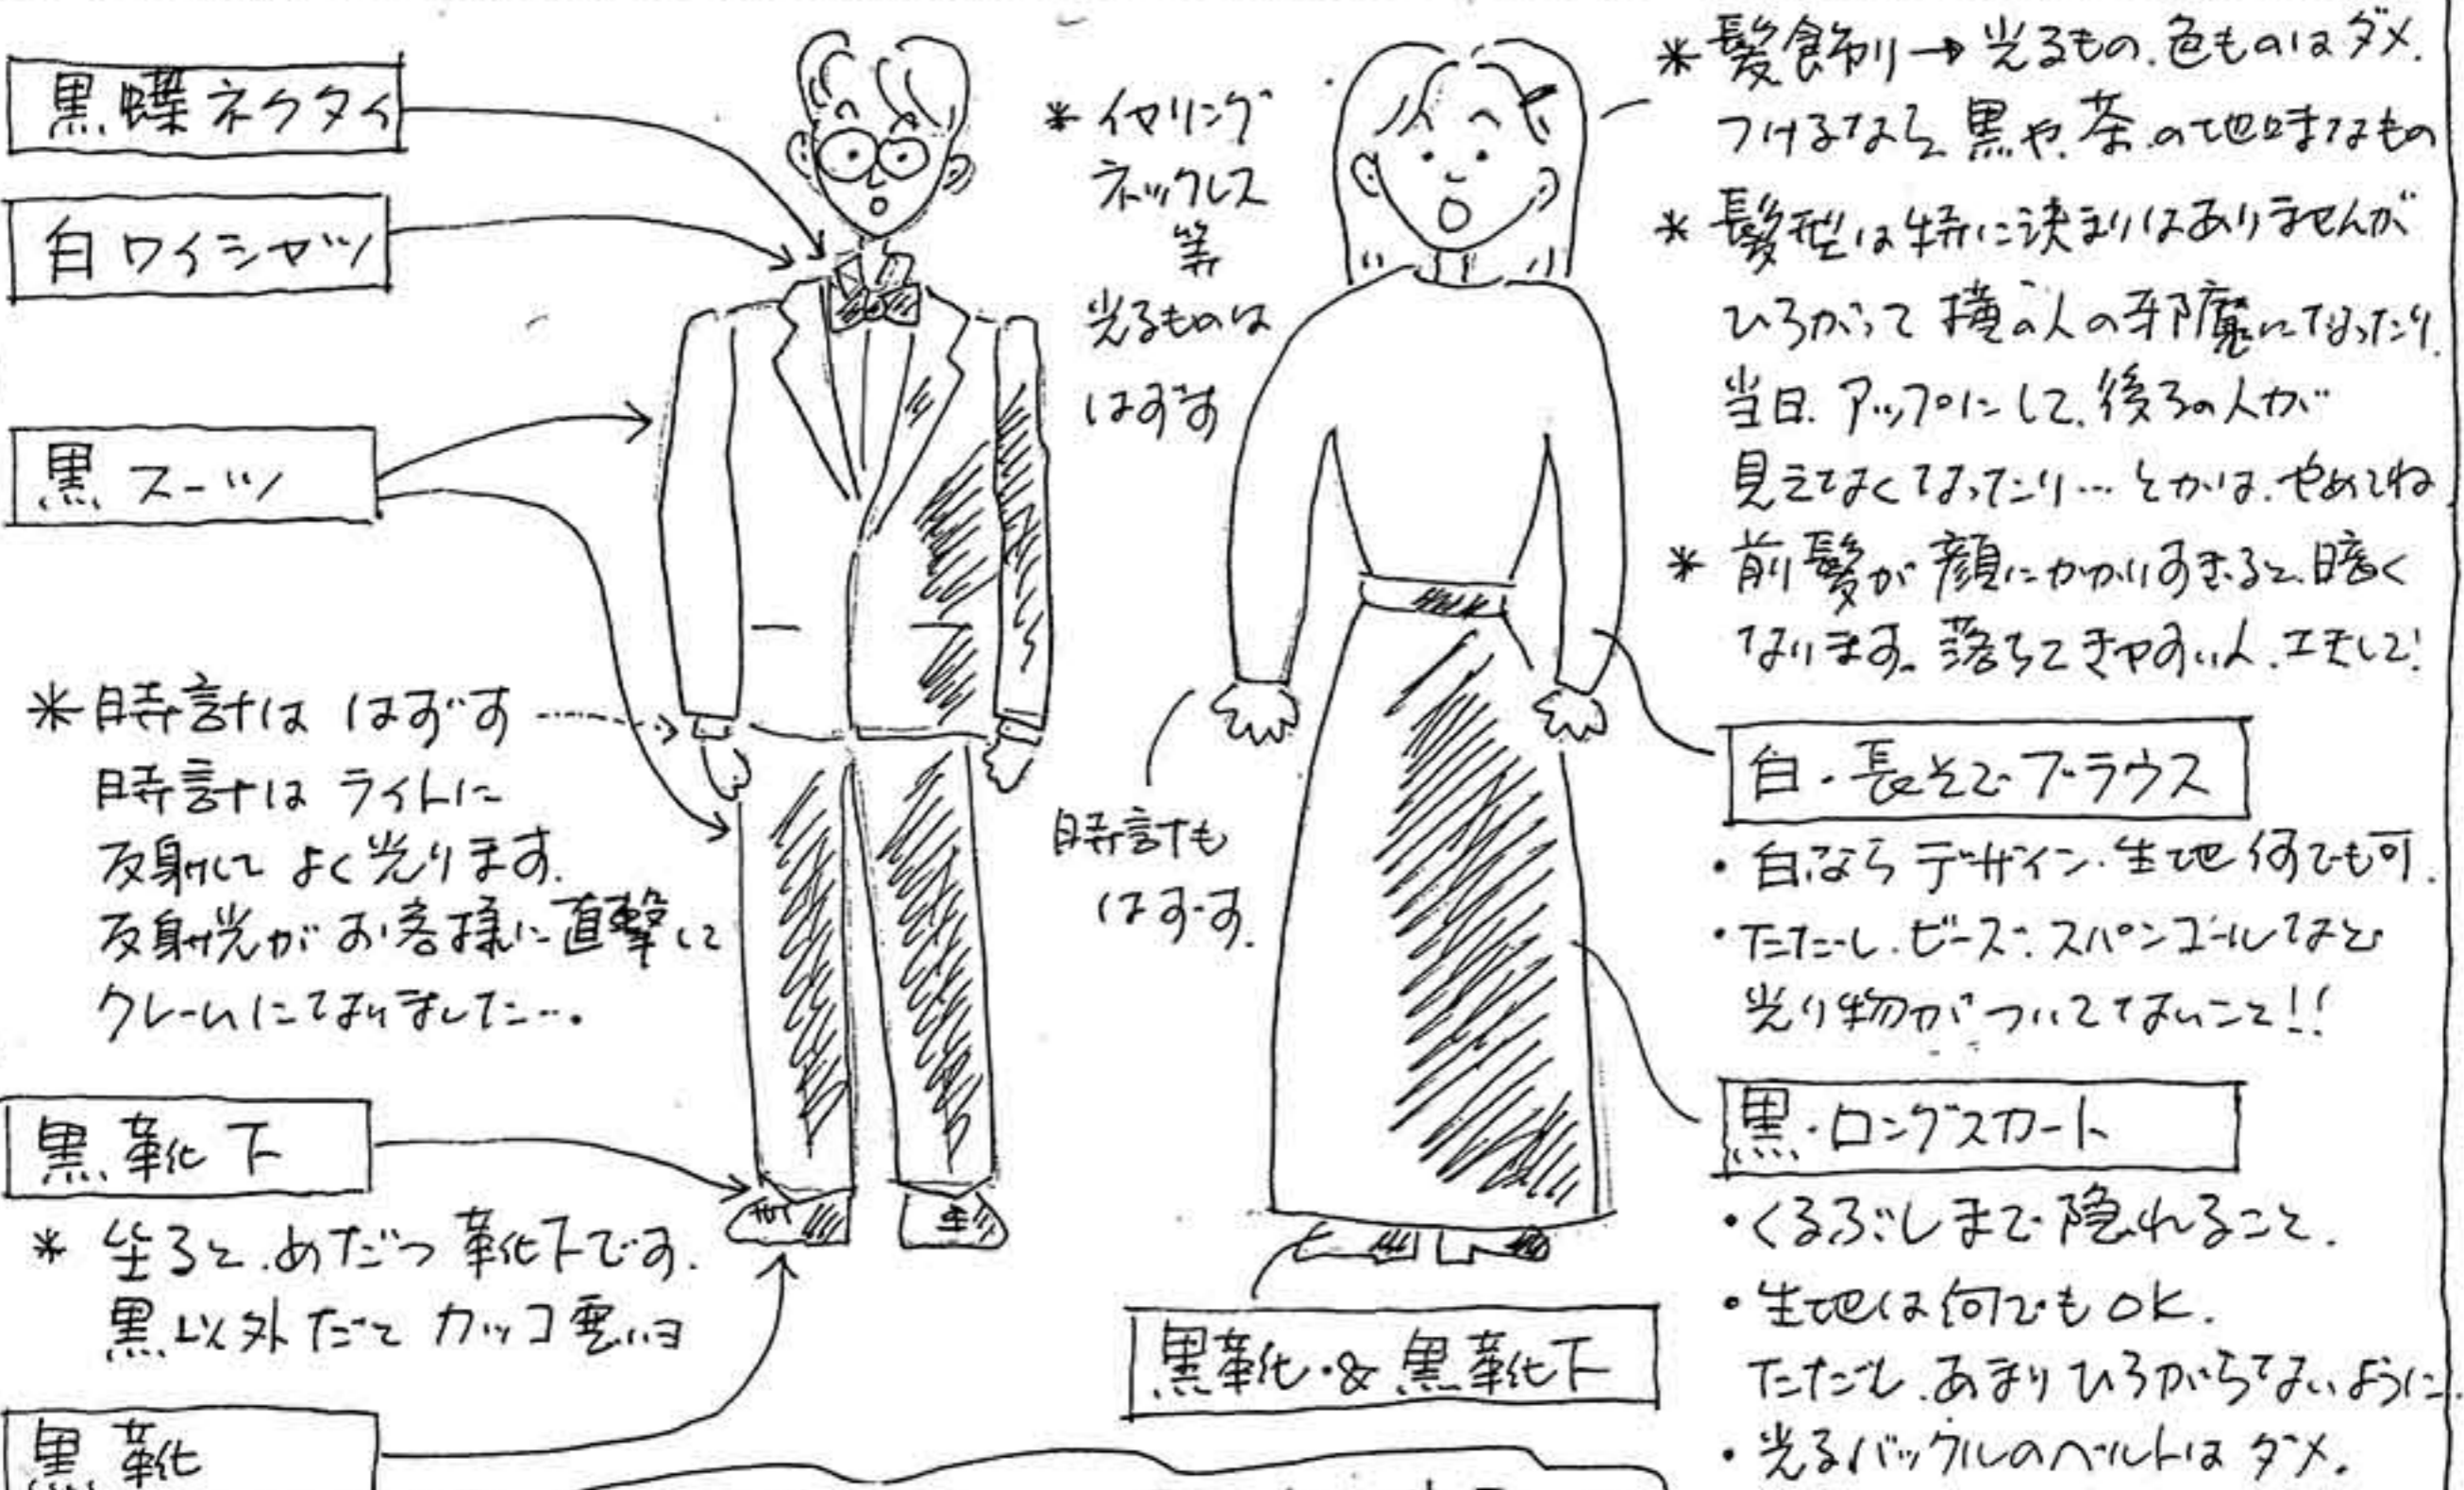 黒蝶ネクタイ
白ワイシャツ
黒スーツ
*時計は はずす
時計は ライトに
反射して よく光ります。
反射光が お客様に直撃して
クレームになりました…。
黒靴下
* 坐ると、めだつ 靴下です。
黒以外だと カッコ悪いヨ
黒靴
* イヤリング
ネックレス
等
光るものは
はずす
時計も
はずす。
黒靴・&黒靴下
* 髪飾り→光るもの、色ものはダメ。
つけるなら、黒や、茶の地味なもの
* 髪型は特に決まりはありませんが
ひろがって 横の人の邪魔になったり、
当日、アップにして、後ろの人が
見えなくなったり…とかは、やめてね
* 前髪が顔にかかりすぎると、暗く
なります。落ちてきやすい人、工夫して!
白・長そでブラウス
・白なら デザイン・生地何でも可。
・ただし、ビーズ、スパンコールなど
光り物がついてないこと!!
黒・ロングスカート
・くるぶしまで隠れること。
・生地は何でもOK.
ただし、あまりひろがらないように。
・光るバックルのベルトは ダメ。